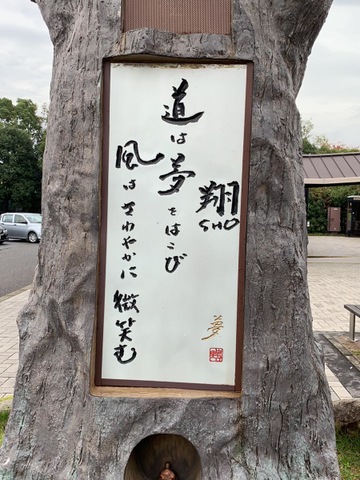 翔
SHO
道は夢をはこび
風はさわやかに微笑む
夢